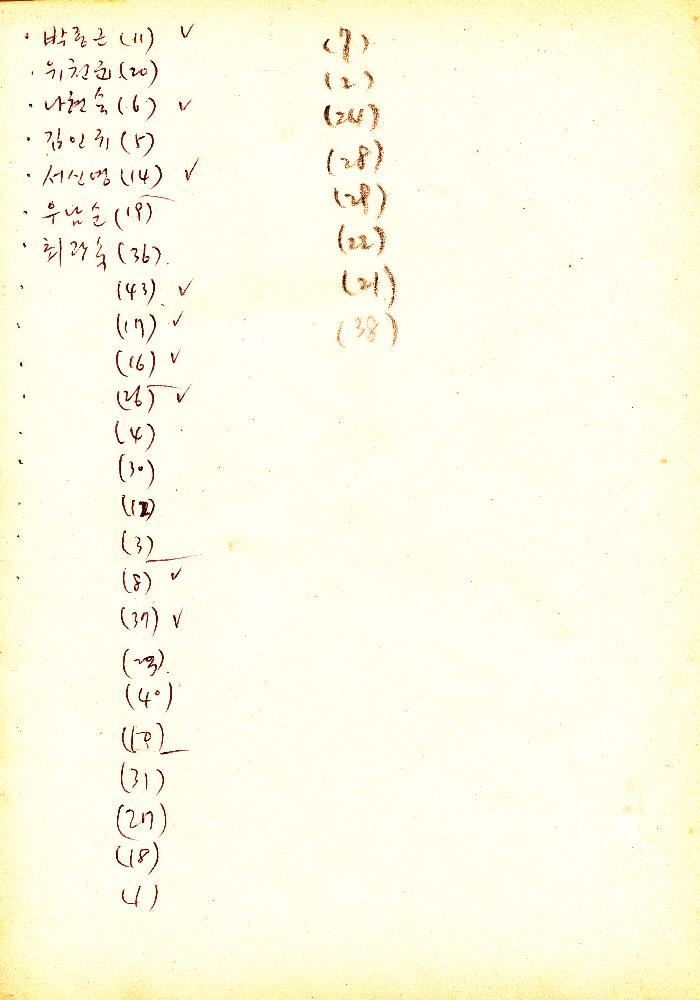 · 박종근 (11) ✓
· 위천환 (20)
· 나현숙 (6) ✓
· 김인귀 (5)
· 서신명 (14) ✓
· 우남순 (19)
· 최광숙 (36)
· (43) ✓
· (17) ✓
· (16) ✓
· (26) ✓
· (4)
· (30)
· (12)
· (3)
· (8) ✓
(37) ✓
(40)
(10)
(31)
(27)
(18)
(1)
(7)
(2)
(24)
(28)
(29)
(22)
(21)
(38)